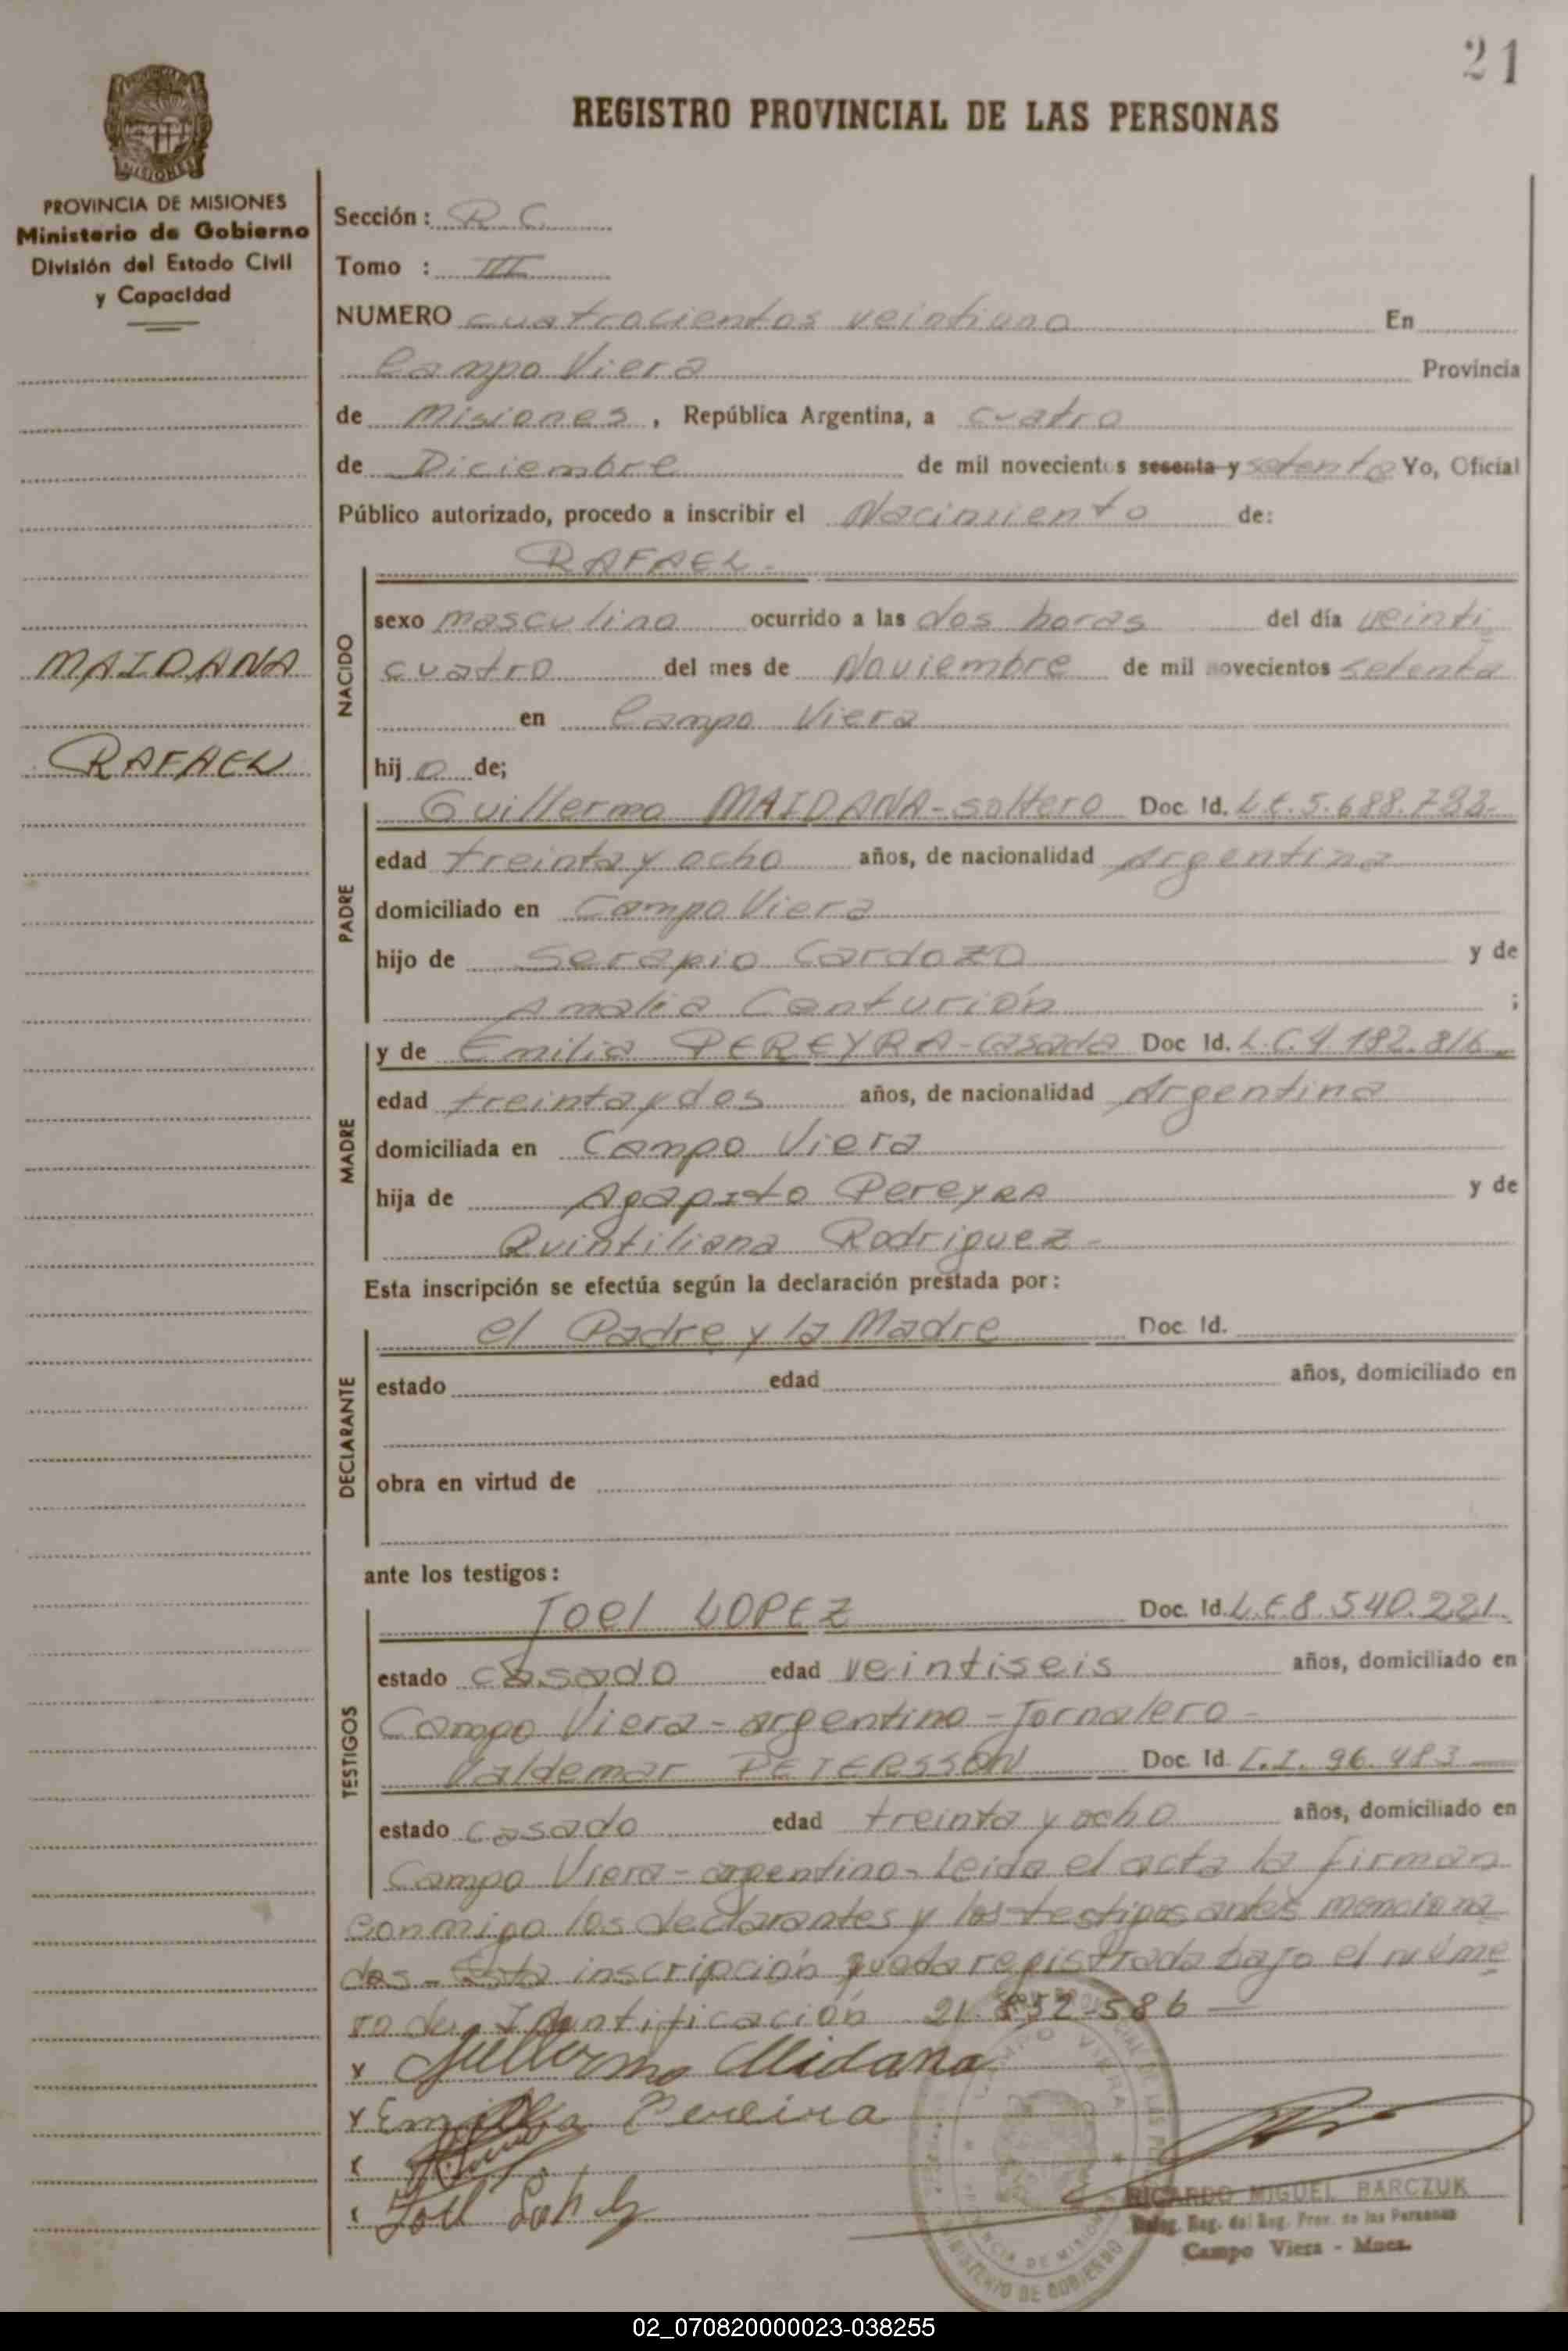 21
REGISTRO PROVINCIAL DE LAS PERSONAS
MISIONES
PROVINCIA DE MISIONES
Ministerio de Gobierno
División del Estado Civil
y Capacidad
Sección: R. C.
Tomo : III
NUMERO cuatrocientos veintiuno En
Campo Viera Provincia
de Misiones, República Argentina, a cuatro
de Diciembre de mil novecientos sesenta y setenta Yo, Oficial
Público autorizado, procedo a inscribir el Nacimiento de:
RAFAEL.
NACIDO
sexo masculino ocurrido a las dos horas del día veinti
MAIDANA
cuatro del mes de Noviembre de mil novecientos setenta
en Campo Viera
RAFAEL
hijo de;
PADRE
Guillermo MAIDANA-soltero Doc. Id. L.E. 5.688.783-
edad treinta y ocho años, de nacionalidad Argentina
domiciliado en Campo Viera
hijo de Serapio Cardozo y de
Amalia Centurión ;
MADRE
y de Emilia PEREYRA-casada Doc Id. L.C.4.182.816
edad treinta y dos años, de nacionalidad Argentina
domiciliada en Campo Viera
hija de Agapito Pereyra y de
Quintiliana Rodriguez-
Esta inscripción se efectúa según la declaración prestada por:
DECLARANTE
el Padre y la Madre Doc. Id.
estado edad años, domiciliado en
obra en virtud de
ante los testigos:
TESTIGOS
Joel LOPEZ Doc. Id. L.E 8.540.221.
estado casado edad veintiseis años, domiciliado en
Campo Viera - argentino - Jornalero -
Valdemar PETERSSON Doc. Id C.I. 96.483
estado casado edad treinta y ocho años, domiciliado en
Campo Viera - argentino - Leida el acta la firman
conmigo los declarantes y los testigos antes menciona
dos - Esta inscripción queda registrada bajo el núme
ro de Identificación 21.852-586
x Guillermo Midana
x Emilia Pereira
x
Joel
RICARDO MIGUEL BARCZUK
Deleg. Reg. del Reg. Prov. de las Personas
Campo Viera - Mnes.
PROVINCIA DE MISIONES
MINISTERIO DE GOBIERNO
02_070820000023-038255